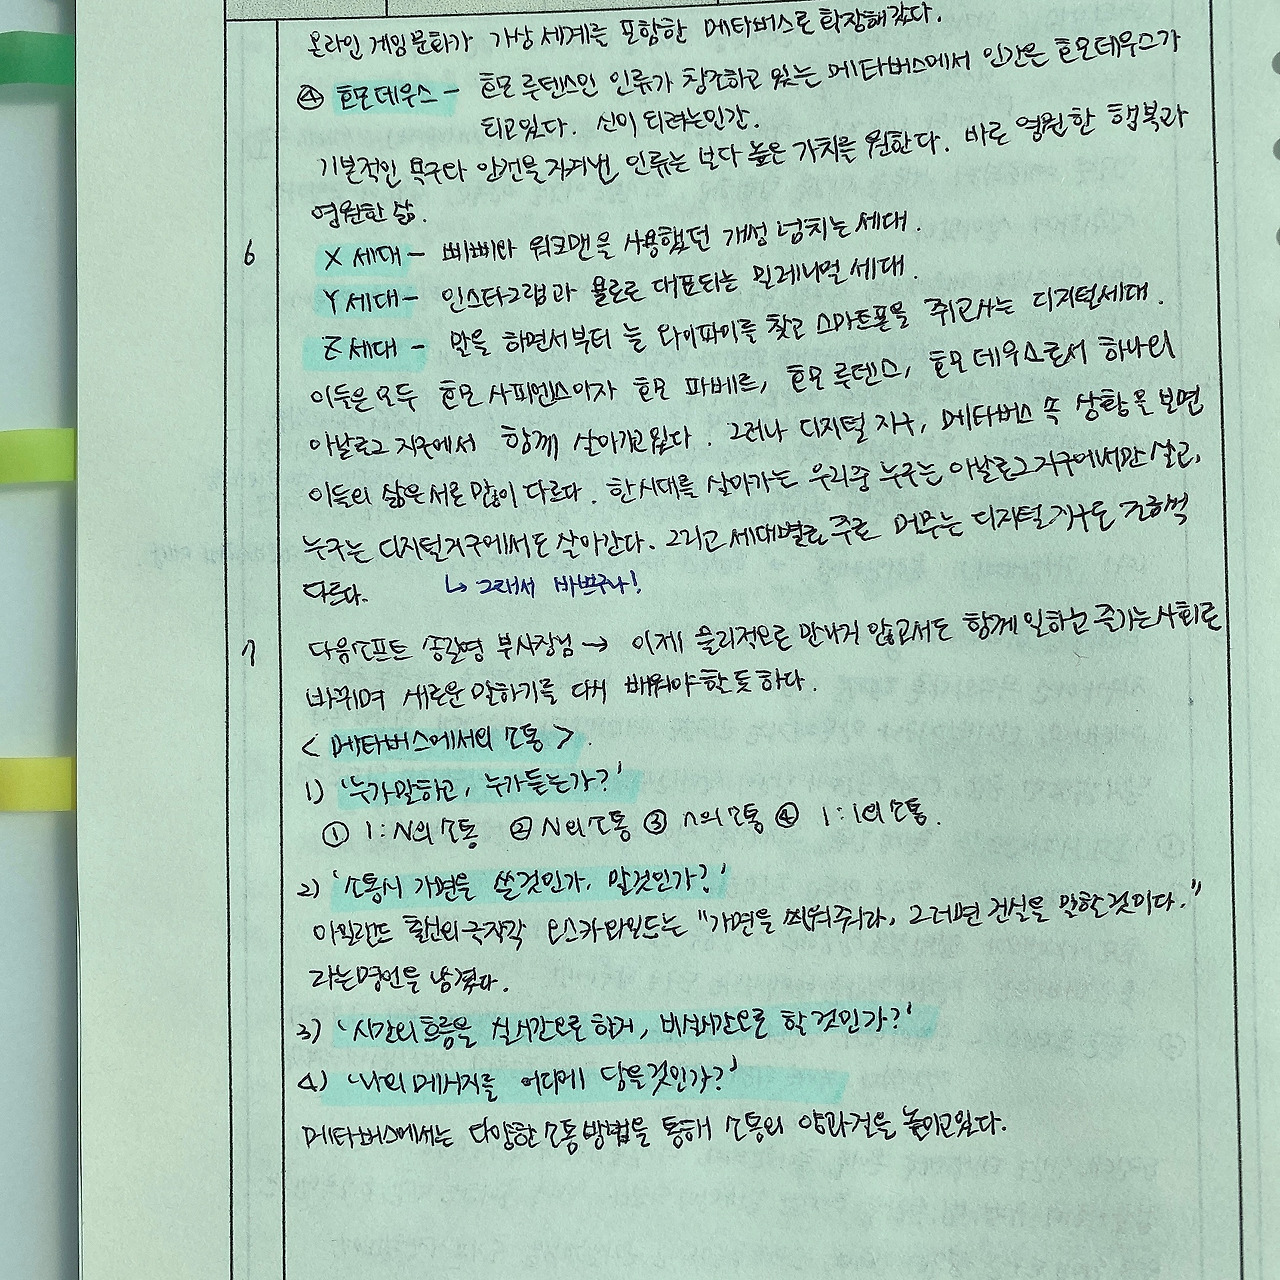 온라인 게임문화가 가상 세계를 포함한 메타버스로 확장해갔다.
④ 호모데우스 - 호모 루덴스인 인류가 창조하고 있는 메타버스에서 인간은 호모데우스가
되고있다. 신이 되려는인간.
기본적인 욕구와 안전을 지켜낸 인류는 보다 높은 가치를 원한다. 바로 영원한 행복과
영원한 삶.
6 X 세대 - 삐삐와 워크맨을 사용했던 개성 넘치는 세대.
Y 세대 - 인스타그램과 욜로로 대표되는 밀레니얼 세대.
Z 세대 - 말을 하면서부터 늘 와이파이를 찾고 스마트폰을 쥐고사는 디지털세대.
이들은 모두 호모 사피엔스이자 호모 파베르, 호모 루덴스, 호모 데우스로서 하나의
아날로그 지구에서 함께 살아가고있다. 그러나 디지털 지구, 메타버스 속 상황을 보면
이들의 삶은 서로 많이 다르다. 한시대를 살아가는 우리중 누구는 아날로그지구에서만 살고,
누구는 디지털지구에서도 살아간다. 그리고 세대별로 주로 머무는 디지털지구도 조금씩
다르다. ↳ 그래서 바쁘구나!
7 다음소프트 송길영 부사장님 → 이제 물리적으로 만나지 않고서도 함께 일하고 즐기는사회로
바뀌며 새로운 말하기를 다시 배워야할듯하다.
< 메타버스에서의 소통 >.
1) '누가말하고, 누가듣는가?'
① 1:N의 소통 ② N의 소통 ③ n의 소통 ④ 1:1의 소통.
2) '소통시 가면을 쓸것인가, 말것인가?'
아일랜드 출신의 극작가 오스카와일드는 "가면을 씌워줘라, 그러면 진실을 말할것이다."
라는명언을 남겼다.
3) '시간의흐름을 실시간으로 하거, 비실시간으로 할것인가?'
4) '나의 메세지를 어디에 담을것인가?'
메타버스에서는 다양한 소통방법을 통해 소통의 양과질을 높이고있다.